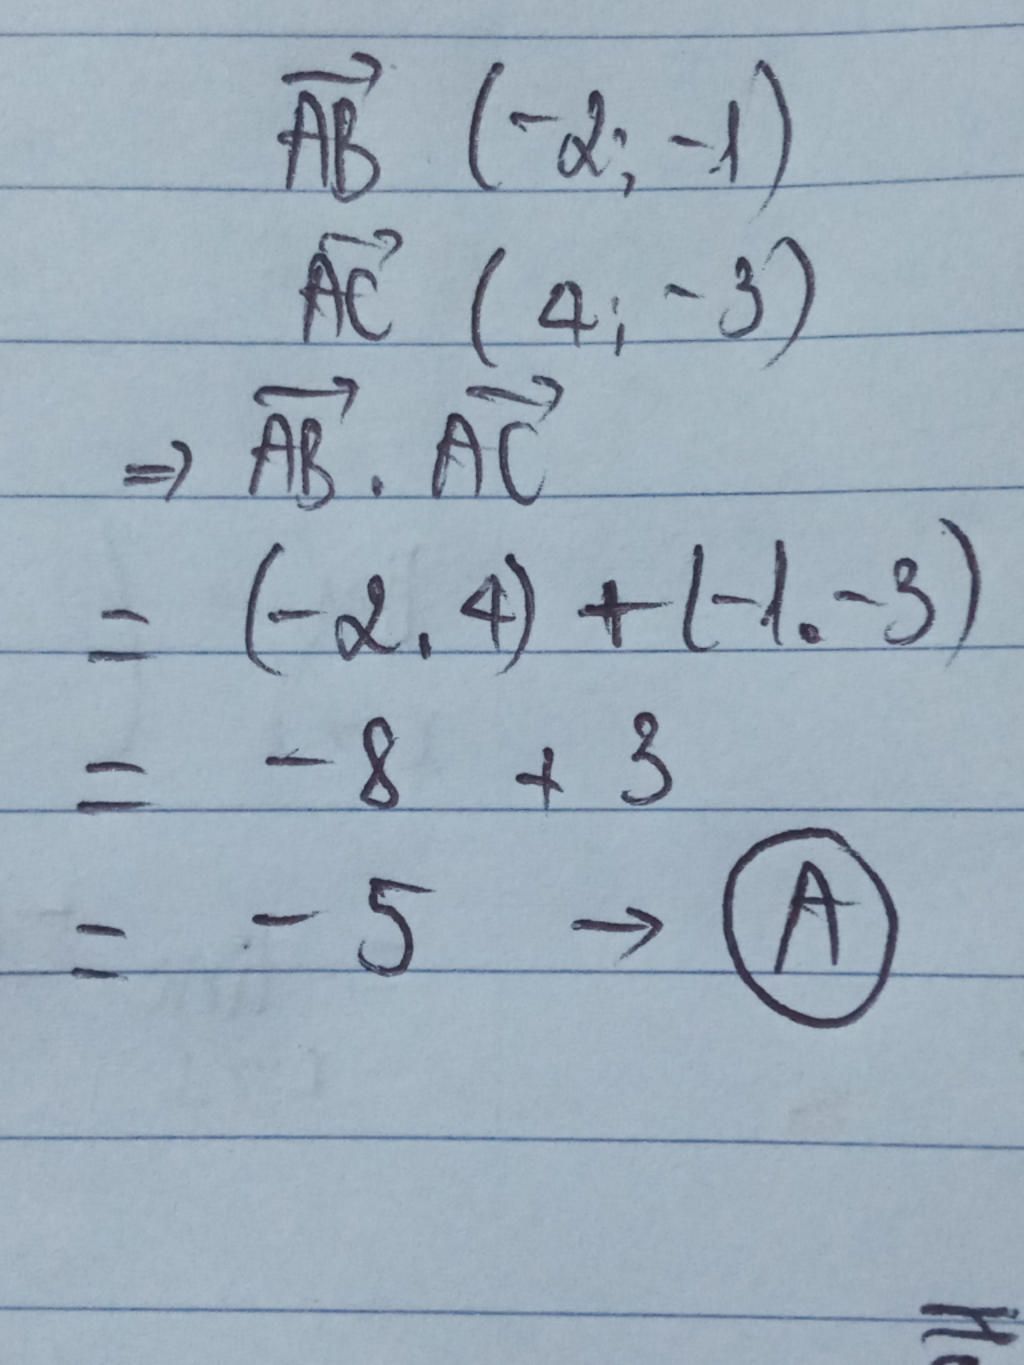 AB⃗ (-2; -1)
AC⃗ (4; -3)
⇒ AB⃗ . AC⃗
= (-2.4) + (-1.-3)
= -8 + 3
= -5 → A